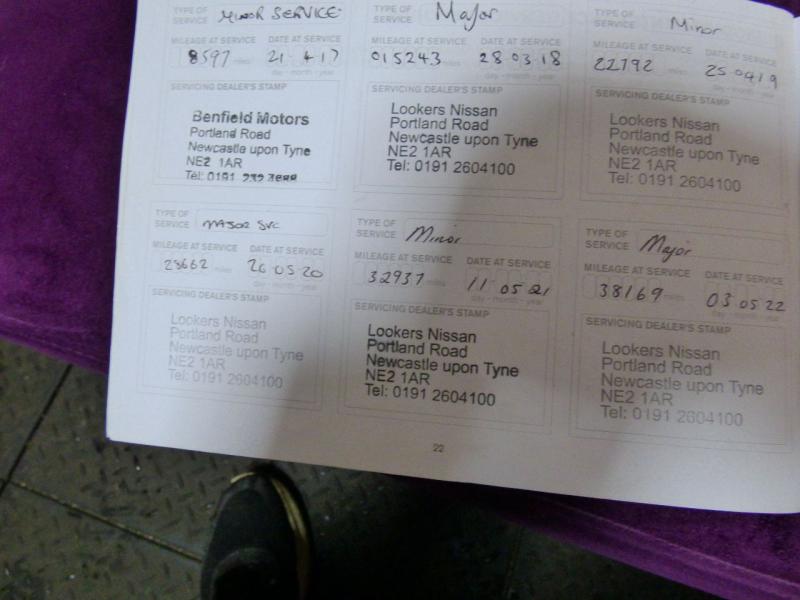 TYPE OF SERVICE MINOR SERVICE
MILEAGE AT SERVICE DATE AT SERVICE
8597 miles 21 4 17
day - month - year
SERVICING DEALER'S STAMP
Benfield Motors
Portland Road
Newcastle upon Tyne
NE2 1AR
Tel: 0191
TYPE OF SERVICE Major
MILEAGE AT SERVICE DATE AT SERVICE
015243 miles 28 03 18
day - month - year
SERVICING DEALER'S STAMP
Lookers Nissan
Portland Road
Newcastle upon Tyne
NE2 1AR
Tel: 0191 2604100
TYPE OF SERVICE Minor
MILEAGE AT SERVICE DATE AT SERVICE
22792 miles 25 04 19
day - month - year
SERVICING DEALER'S STAMP
Lookers Nissan
Portland Road
Newcastle upon Tyne
NE2 1AR
Tel: 0191 2604100
TYPE OF SERVICE MAJOR SVC
MILEAGE AT SERVICE DATE AT SERVICE
28662 miles 26 05 20
day - month - year
SERVICING DEALER'S STAMP
Lookers Nissan
Portland Road
Newcastle upon Tyne
NE2 1AR
Tel: 0191 2604100
TYPE OF SERVICE Minor
MILEAGE AT SERVICE DATE AT SERVICE
32937 miles 11 05 21
day - month - year
SERVICING DEALER'S STAMP
Lookers Nissan
Portland Road
Newcastle upon Tyne
NE2 1AR
Tel: 0191 2604100
TYPE OF SERVICE Major
MILEAGE AT SERVICE DATE AT SERVICE
38169 miles 03 05 22
day - month - year
SERVICING DEALER'S STAMP
Lookers Nissan
Portland Road
Newcastle upon Tyne
NE2 1AR
Tel: 0191 2604100
22